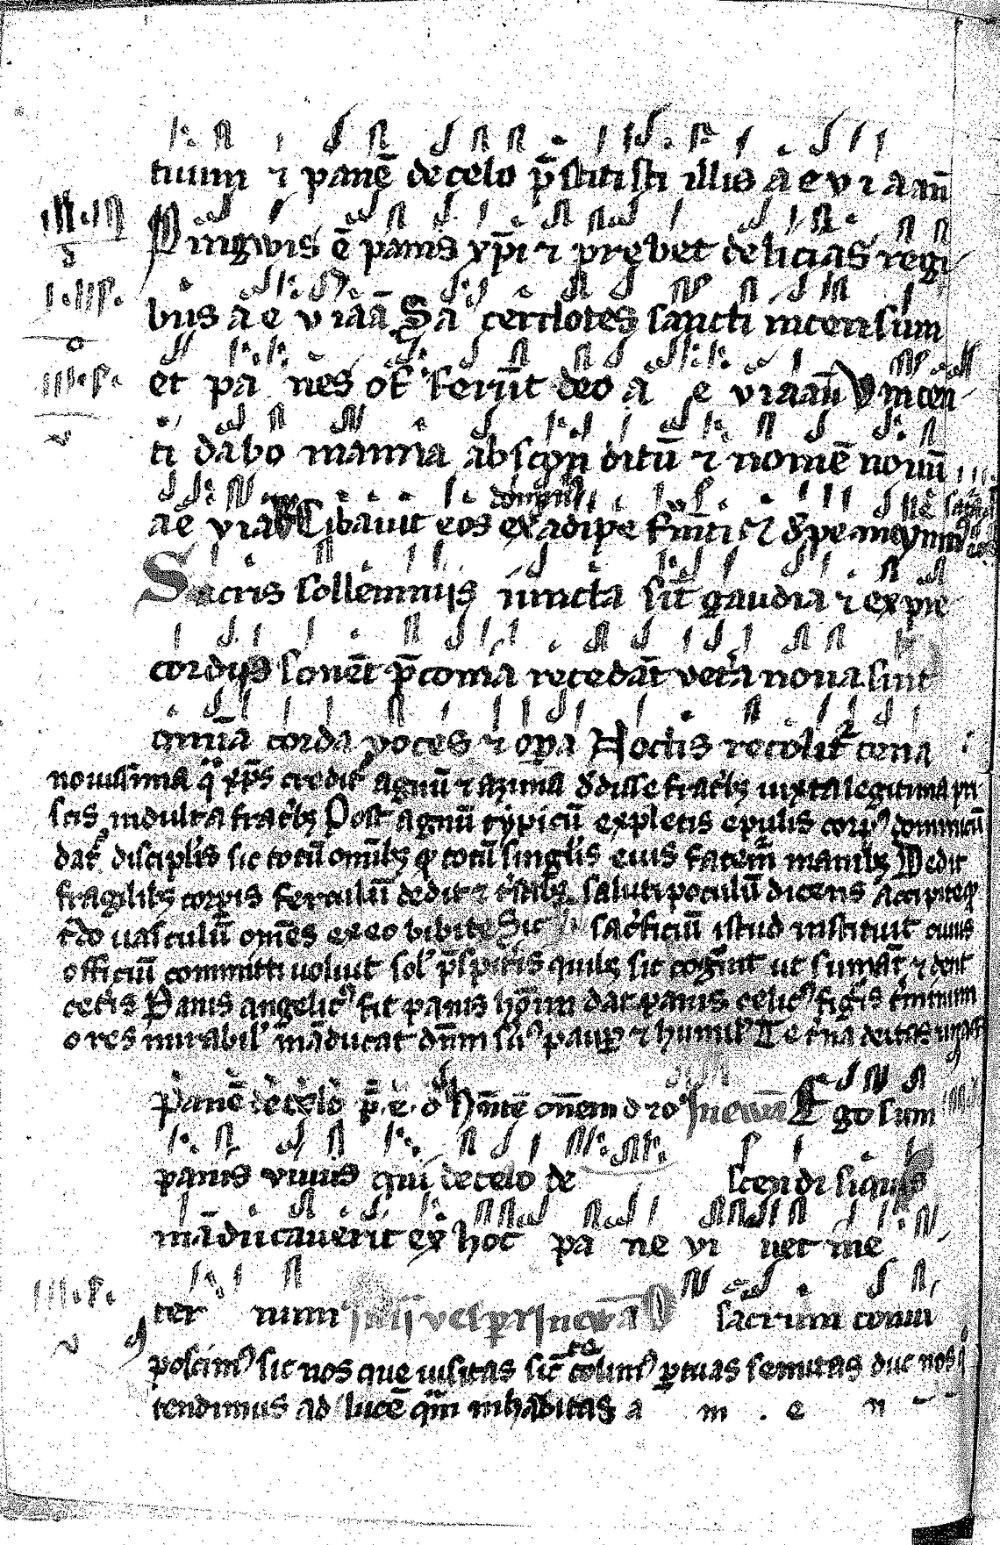 tuum ⁊ panē de celo p̄stitisti illis a e v i a an̄
Pingwis ē panis xp̄i ⁊ prebet delicias regi
bus a e v i a a Sa cerdotes sancti incensum
et pa nes off ferūt deo a e v i a an̄ Vincen
ti dabo manna absconditū ⁊ nomē novū
a e v i a Cibavit eos ex adipe frum̄ti
Sacris sollemniis iuncta sīt gaudia ⁊ ex pre
cordiis sonēt p̄conia recedāt vet'a nova sint
omīa corda voces ⁊ opa Noctis recolit' cena
novissima q̄ xp̄s credit' agnū ⁊ azima dedisse frat'bꝫ iuxta legitima pri
scis indulta frat'bꝫ Post agnū typicū expletis epulis corp9 dominicū
dat' discipl'is sic totū om̄ibꝫ q totū singl'is eius fatem̄ manibꝫ Dedit
fragilibꝫ corpis ferculū dedit ⁊ t'stibꝫ salutis poculū dicens accipite q
t'do vasculū om̄es ex eo bibite Sic sac'ficiū istud instituit cuius
officiū committi voluit sol' p̄sbit'is quibꝫ sic cogruit ut sumāt ⁊ dent
cet'is Panis angelic9 fit panis hoīm dat panis celic9 fig'is t'minum
o res mirabil' māducat dn̄m paup ⁊ humil' Te t'na deitas
Panē de celo p̄. e. o Hn̄tē om̄em d In ewā Ego sum
panis vivus qui de celo de scendi siquis
māducaverit ex hoc pa ne vi vet in e
ter num vel pr In ewā O sacrum convi
poscim9 sic nos que visitas sic̄ te colim9 p tuas semitas duc nos q
tendimus ad lucē quā inhabitas a m . e n